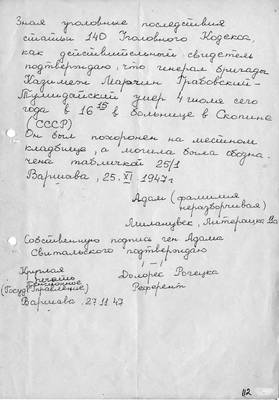 Зная уголовные последствия
статьи 140 Уголовного Кодекса,
как действительный свидетель
подтверждаю, что генерал бригады
Казимеж Марчин Грабовский-
Тумидайский умер 4 июля сего
года в 16 15 в больнице в Скопине
(СССР)
Он был похоронен на местном
кладбище, а могила была обозна-
чена табличкой 25/1
Варшава, 25.XI 1947г.
Адам (фамилия
неразборчивая)
Милановек, Литерацка
Собственную подпись ген Адама
Свитальского подтверждаю
Круглая
печать
Пенсионное
(Госуд. Управление)
Долорес Рочецка
Референт
Варшава, 27.11.47
112